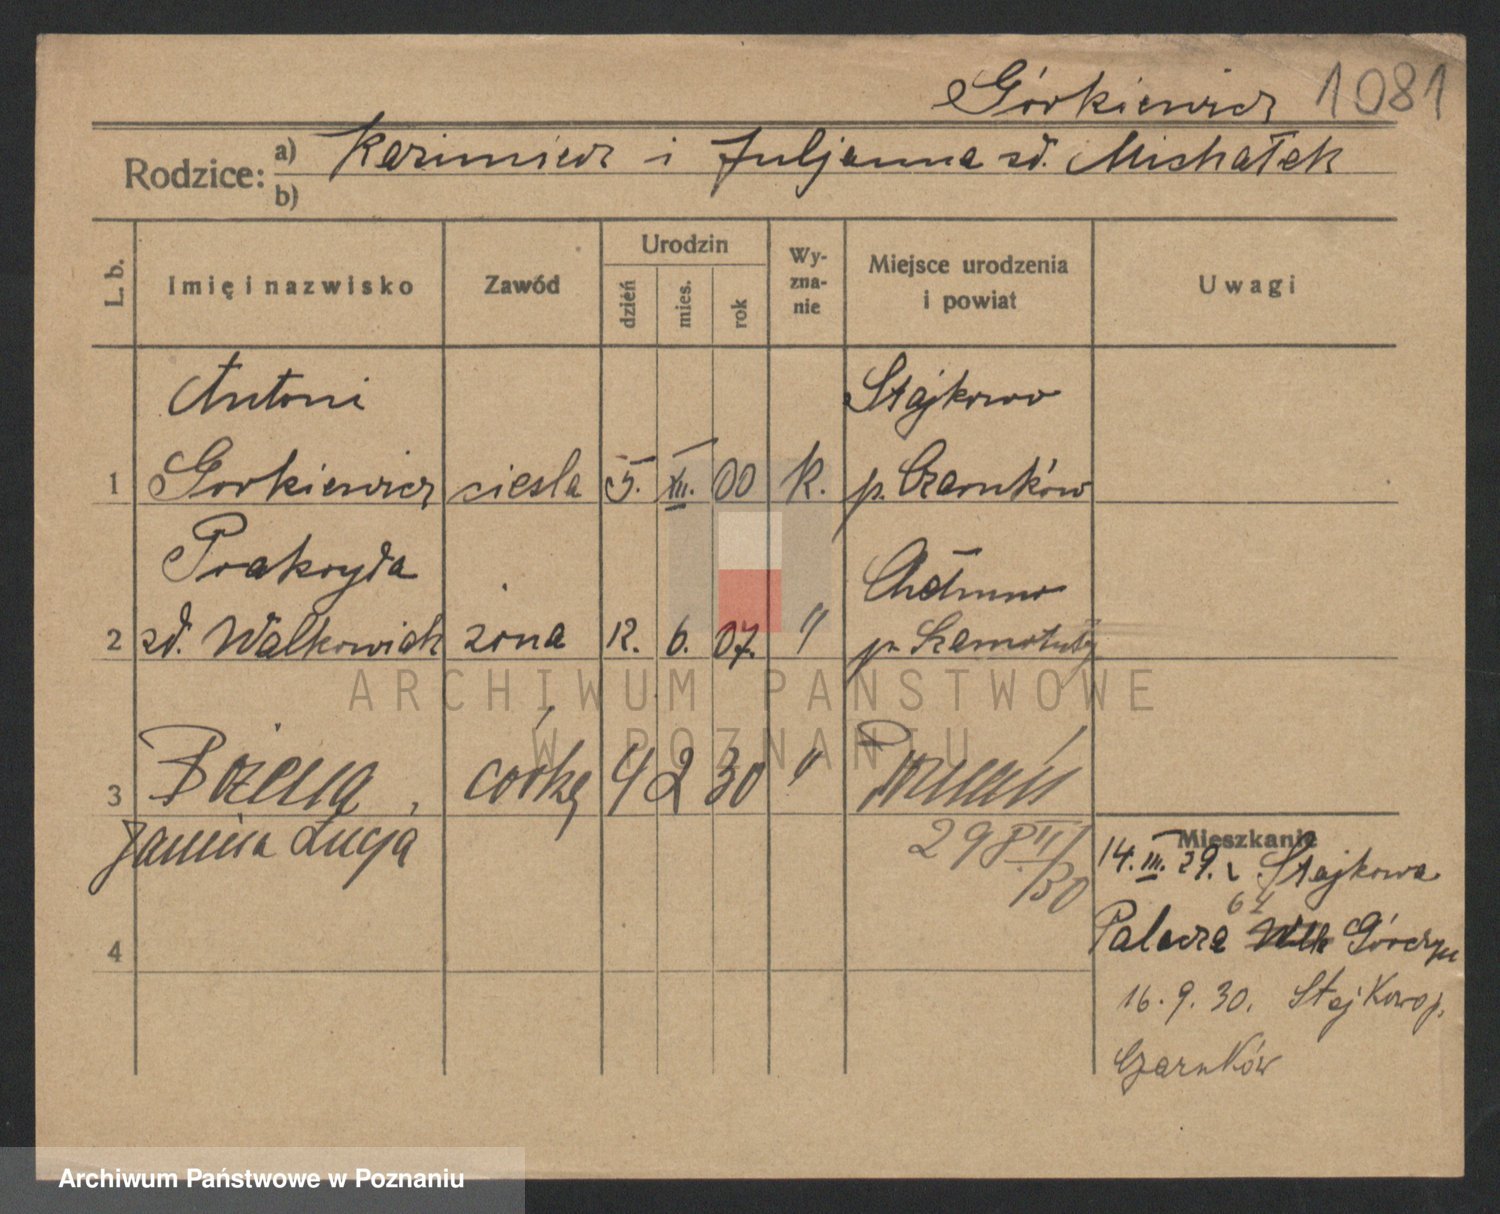 Górkiewicz 1081
Rodzice: a) Kazimierz i Juljanna zd. Michałek
b)
L. b. Imię i nazwisko Zawód Urodzin dzień mies. rok Wyznanie Miejsce urodzenia i powiat Uwagi
Antoni Stajkowo
1 Górkiewicz ciesla 5. XII. 00 k. p. Czarnków
Prakseda
2 zd. Walkowiak żona 12. 6. 07. " p. Szamotuły
3 Bożena, córka 4 2 30 " Poznań
Janina Łucja 298 III/30
Mieszkanie
14. III. 29. z Stajkowa
67
Palacza Górczyn
4
16. 9. 30. Stajkowo p.
Czarnków
ARCHIWUM PAŃSTWOWE
W POZNANIU
Archiwum Państwowe w Poznaniu